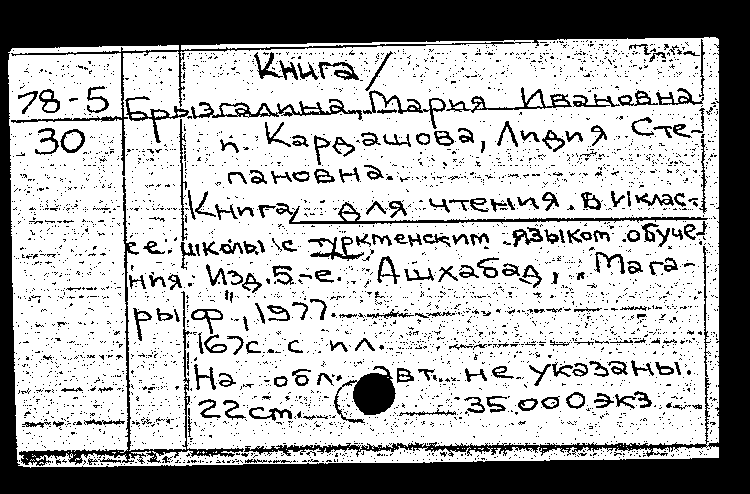 Книга/
78-5 Брызгалина, Мария Ивановна
30 и. Кардашова, Лидия Сте-
пановна.
Книга для чтения. В VI клас-
се школы с туркменским языком обуче-
ния. Изд. 5-е. Ашхабад, "Мага-
рыф", 1977.
167с. с ил.
На обл. авт. не указаны.
22 см. 35 000 экз.